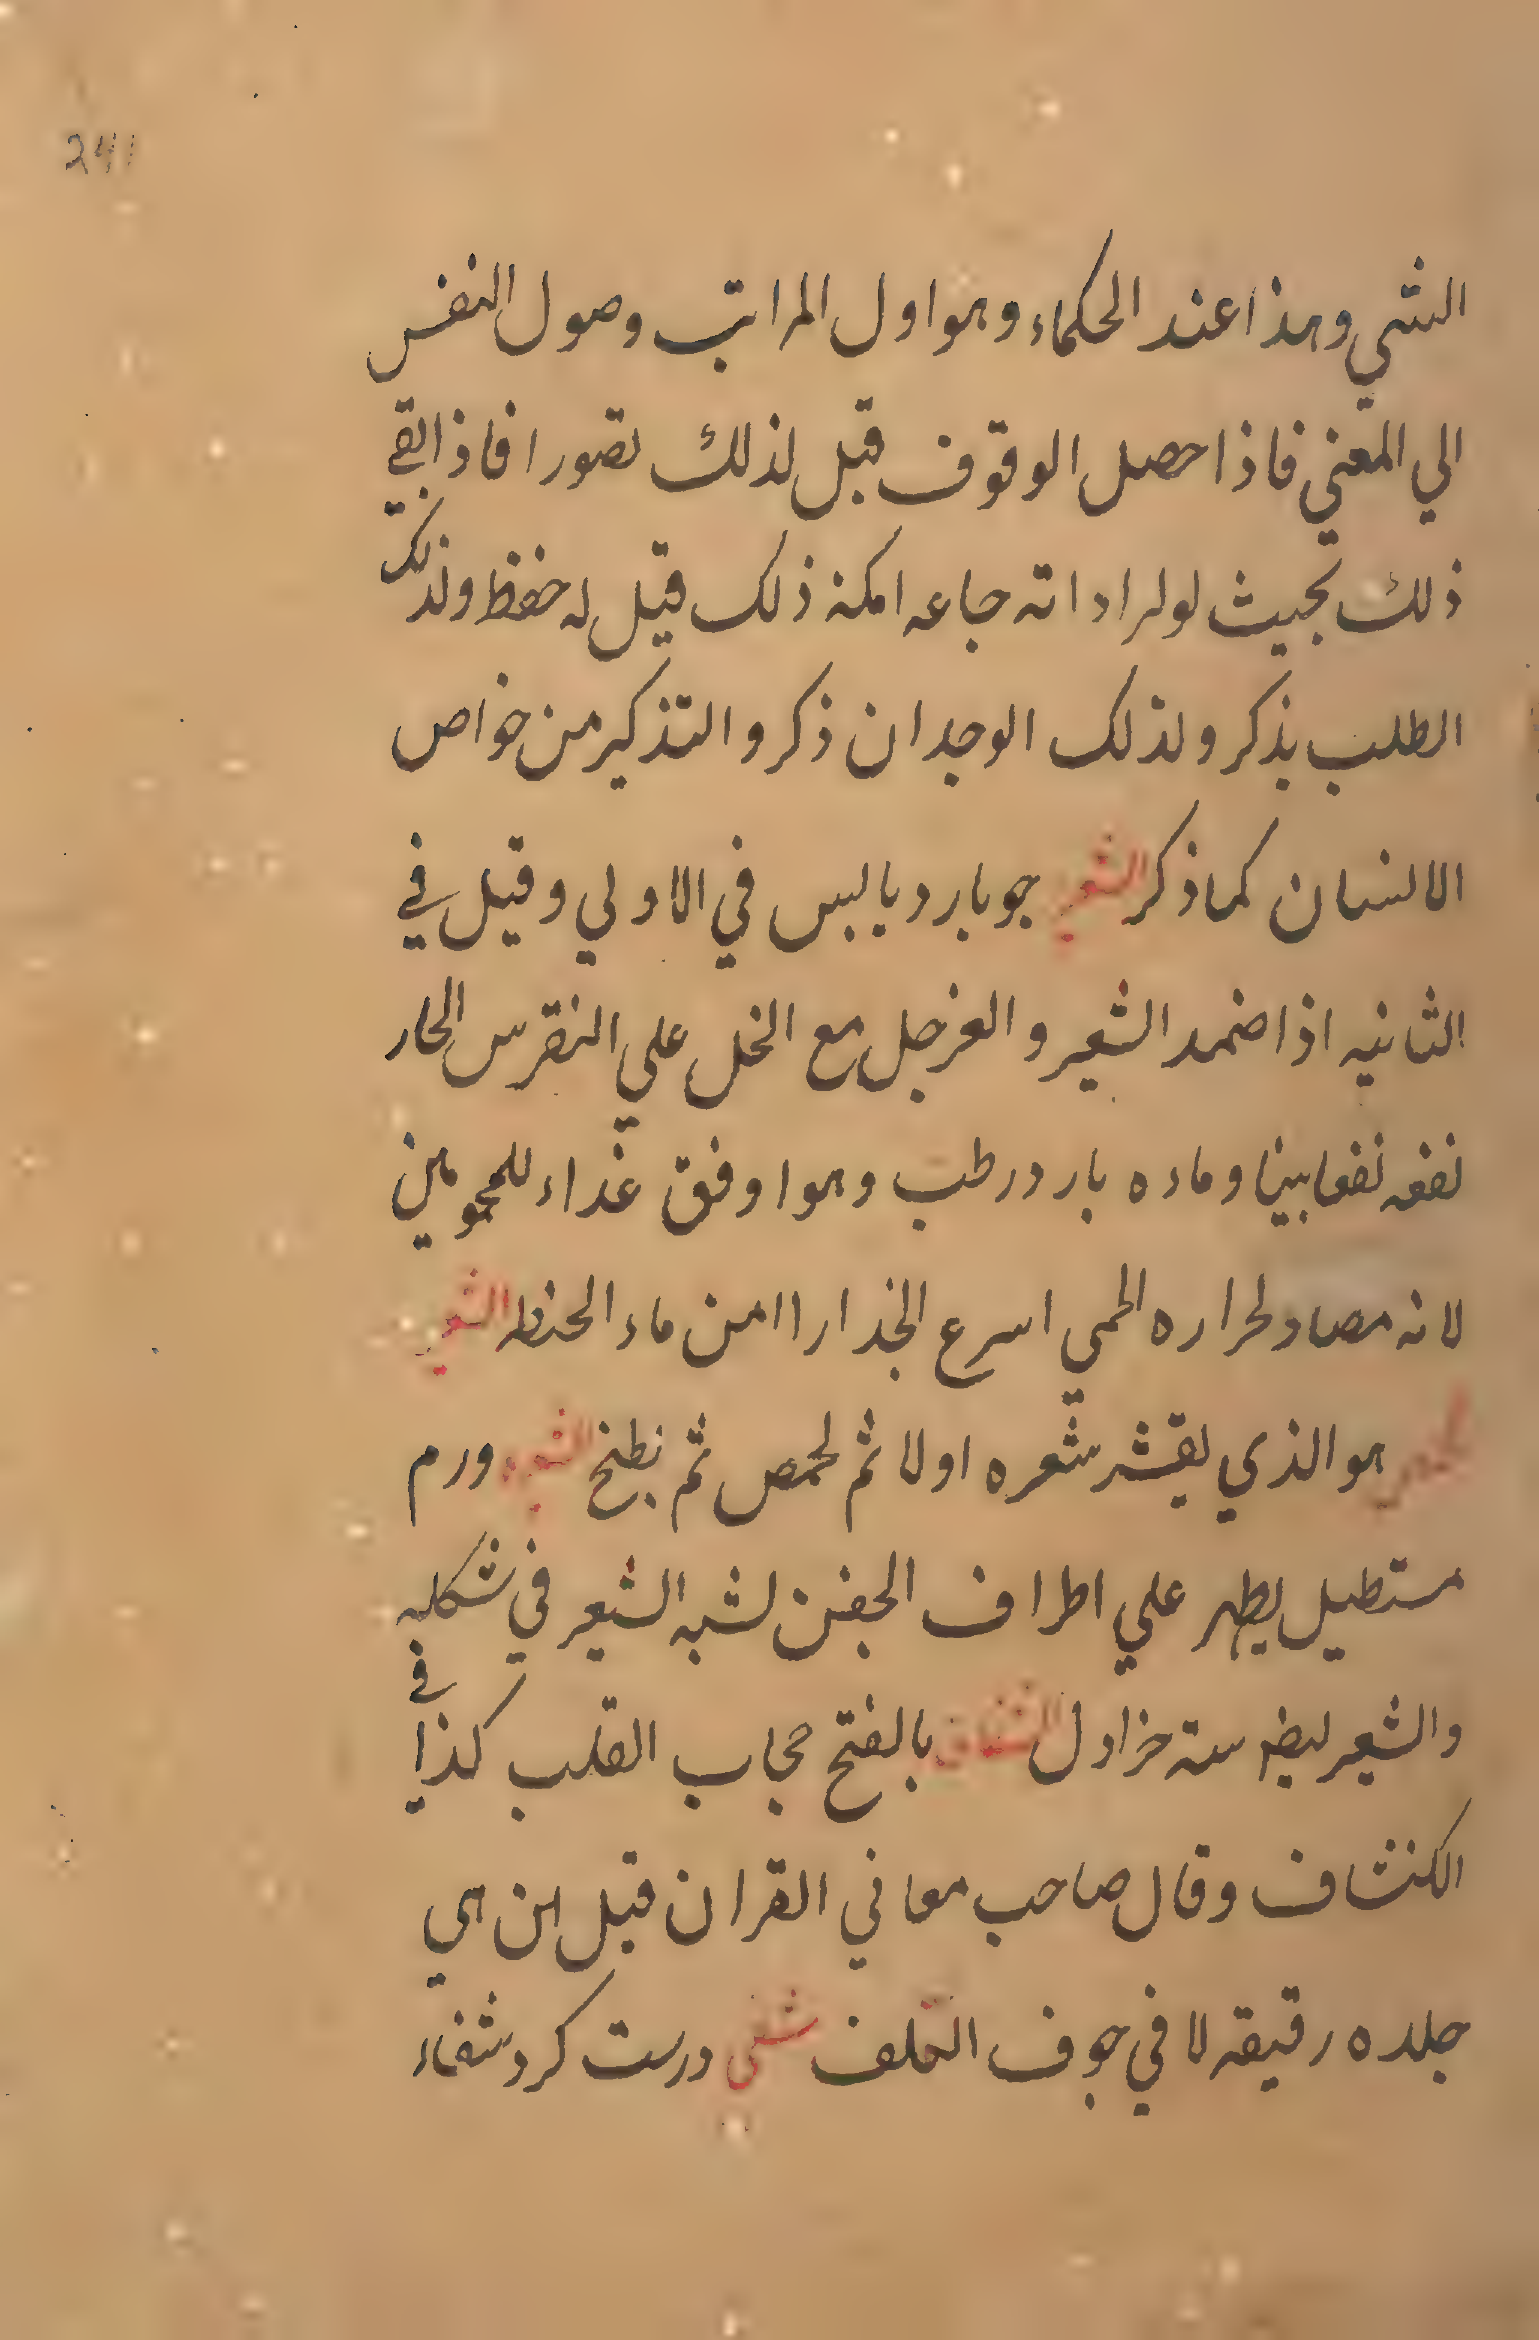 241
الشي وهذا عند الحكماء وهو اول المراتب وصول النفس
الي المعني فاذا حصل الوقوف قبل لذلك تصورا فاذا بقي
ذلك بحيث لو اراد اته جاعه امكنه ذلك قيل له حفظ ولذلك
الطلب بذكر ولذلك الوجدان ذكر و التذكير من خواص
الانسان كما ذكر الشعير جو بارد يابس في الاولي وقيل في
الثانيه اذا ضمد الشعير و العفرجل مع الخل علي النقرس الحار
نفعه نفعا بينا وماءه بارد رطب وهو اوفق غذاء للمحمومين
لانه مضاد لحراره الحمي اسرع انحدارا من ماء الحنطه الشعير
المحمص هو الذي يقشر شعره اولا ثم يحمص ثم يطبخ الشعيره ورم
مستطيل يظهر علي اطراف الجفن لشبه الشعير في شكله
والشعير ايضا سته خرادل الشغاف بالفتح حجاب القلب كذا في
الكشاف وقال صاحب معاني القران قيل ان هي
جلده رقيقه لا في جوف الغلف شفي درست كرد شفاء